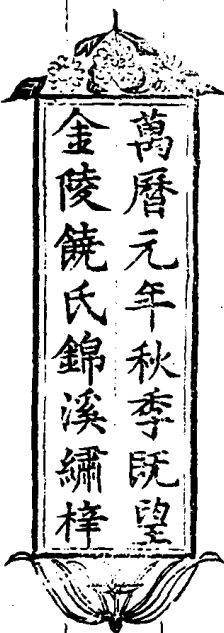 萬曆元年秋季既望
金陵饒氏錦溪繡梓